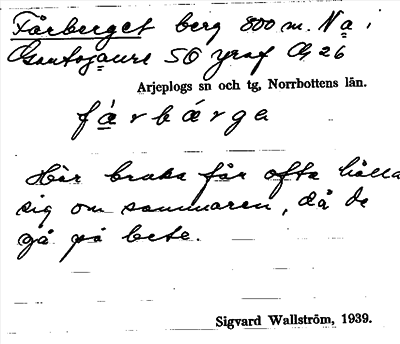 Fårberget berg 800 m. N a.
Gautojaure SO yraf G 26
Arjeplogs sn och tg, Norrbottens län.
fárbárge
Här bruka får ofta hålla
sig om sommaren, då de
gå på bete.
Sigvard Wallström, 1939.